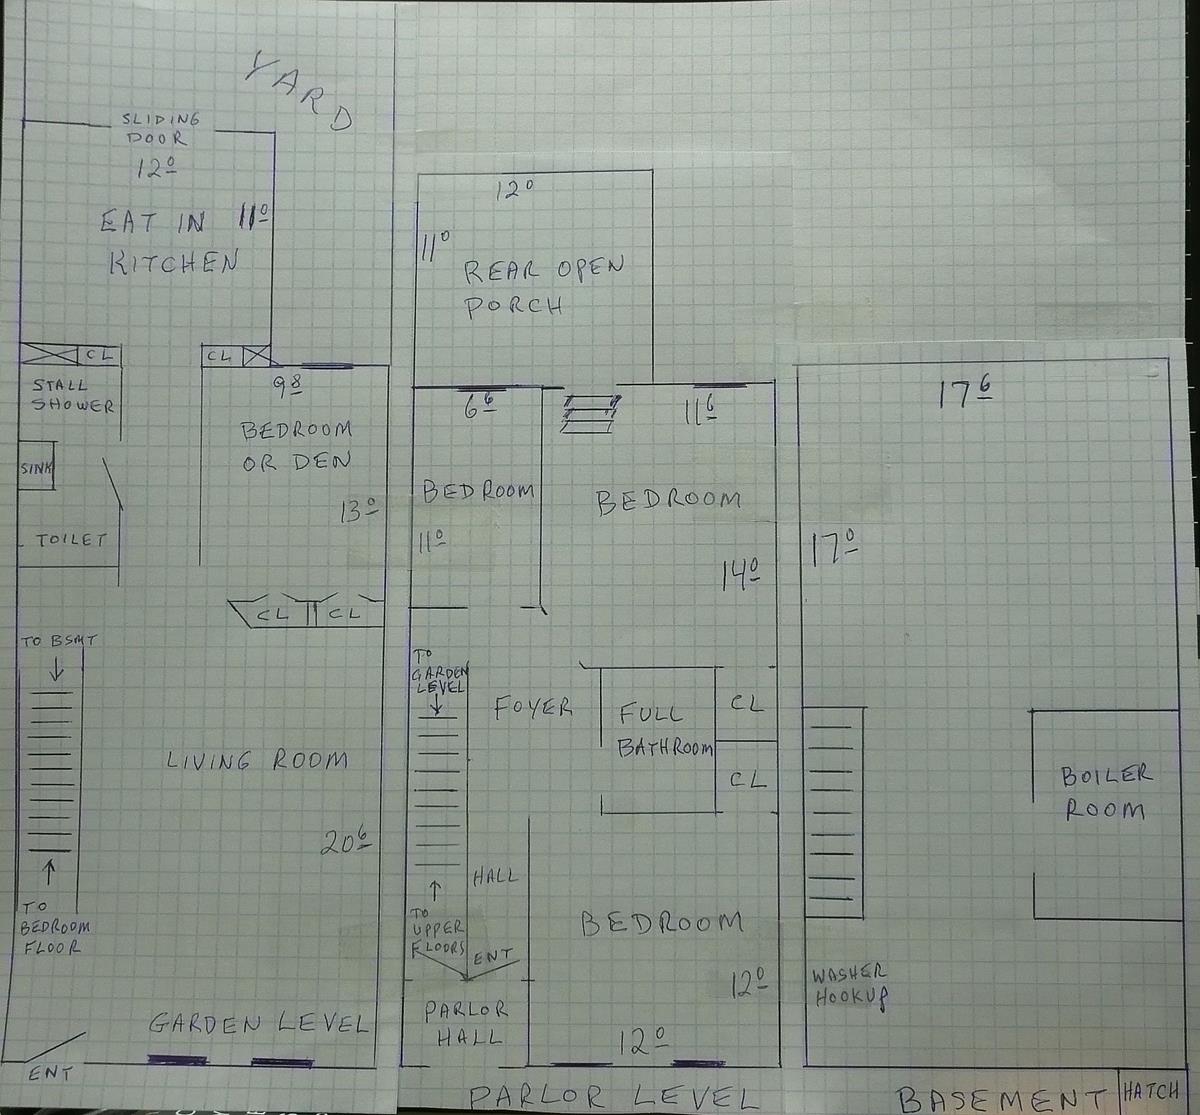 YARD
SLIDING
DOOR
12⁰
EAT IN 11⁰
KITCHEN
CL
CL
STALL
SHOWER
9⁸
BEDROOM
OR DEN
SINK
13⁰
TOILET
CL CL
TO BSMT
LIVING ROOM
20⁶
TO
BEDROOM
FLOOR
GARDEN LEVEL
ENT
12⁰
11⁰
REAR OPEN
PORCH
6⁶
11⁶
BEDROOM
BEDROOM
11⁰
14⁰
TO
GARDEN
LEVEL
FOYER
FULL
BATHROOM
CL
CL
HALL
TO
UPPER
FLOORS
ENT
BEDROOM
12⁰
PARLOR
HALL
12⁰
PARLOR LEVEL
17⁶
17⁰
BOILER
ROOM
WASHER
HOOKUP
BASEMENT
HATCH